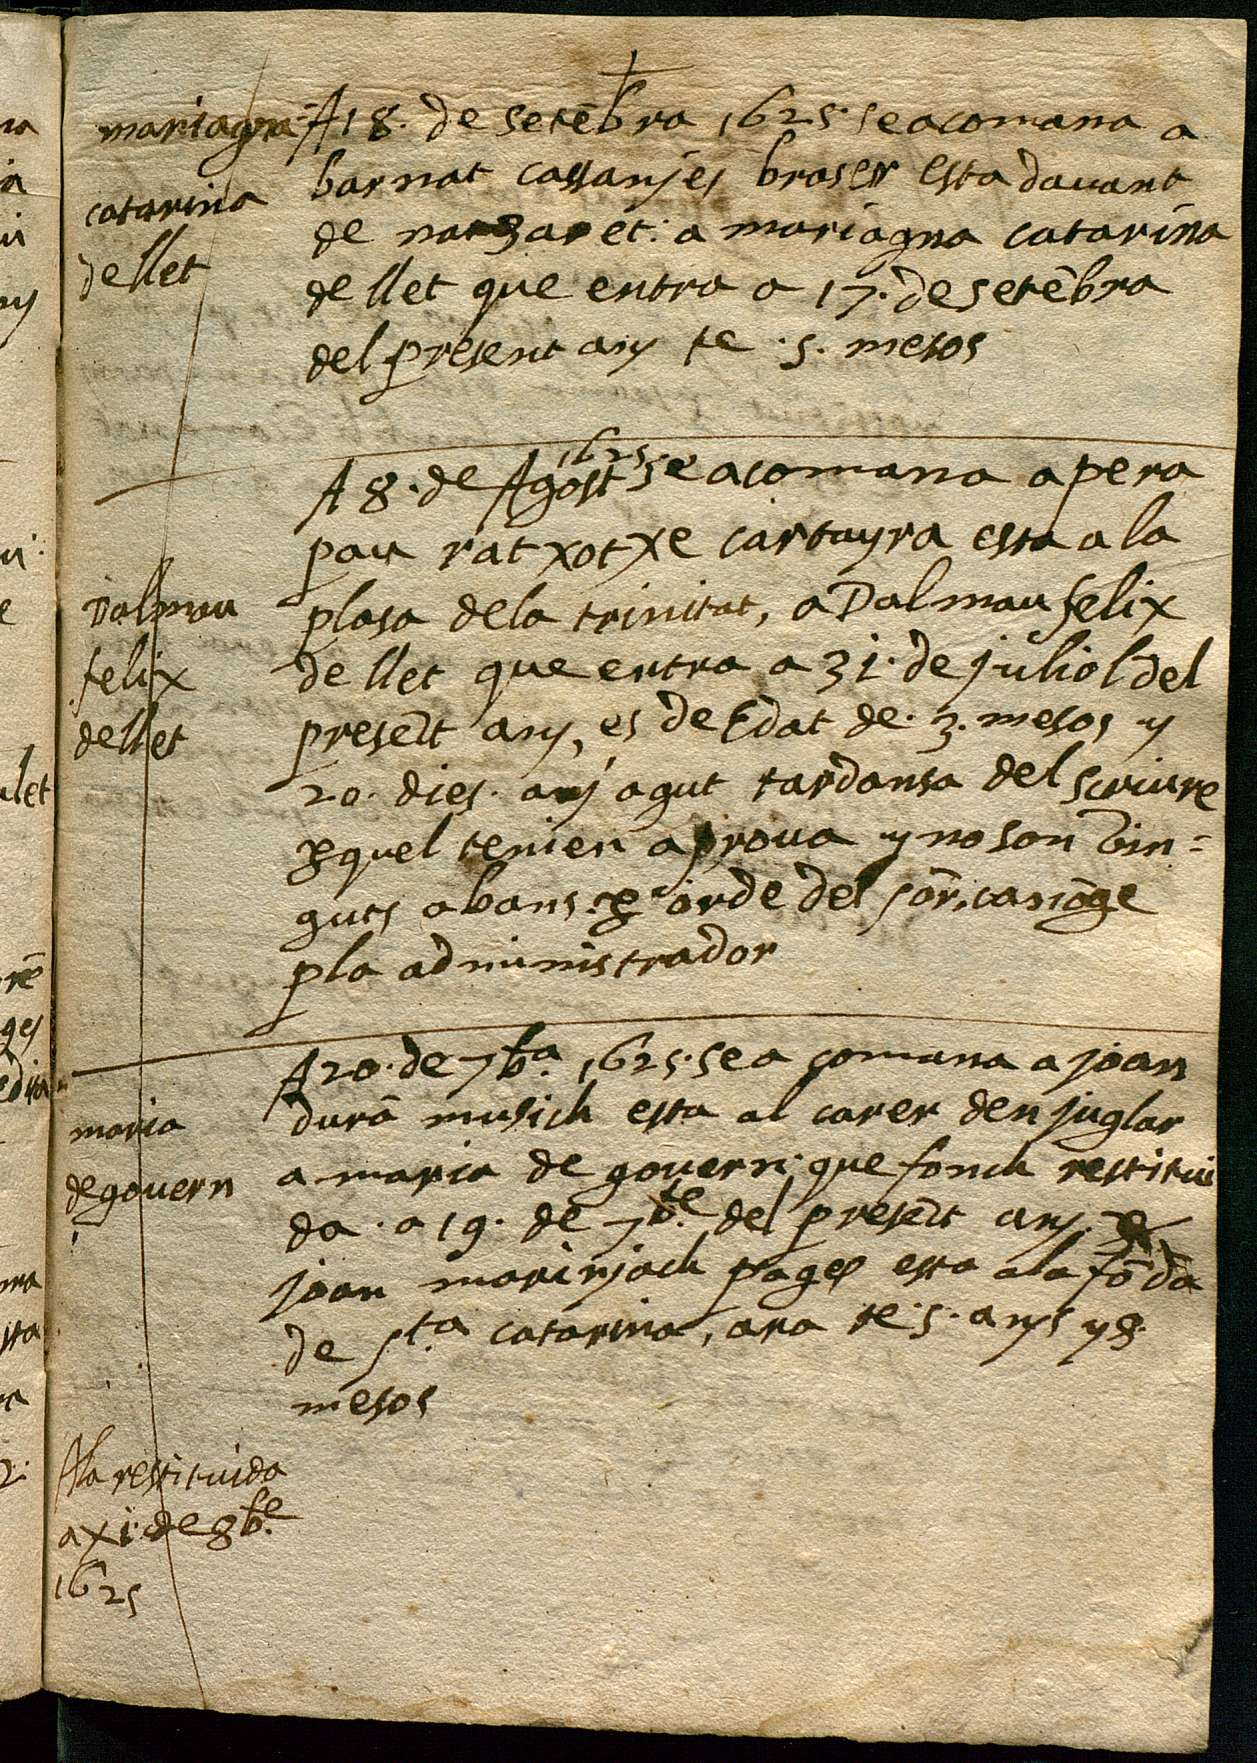 mariagna
catarina
de llet
A 18. de setẽbra 1625. se acomana a
barnat cassanjes braser esta dauant
de natzaret. a mariagna catarina
de llet que entra a 17. de setẽbra
del present any te .5. mesos
Dalmau
felix
de llet
1625.
A 8. de Agost se acomana a pera
pau ratxotxe cartayra esta a la
plasa de la trinitat, a Dalmau felix
de llet que entra a 31. de juliol del
preset any, es de Edat de .3. mesos y
20. dies. anj agut tardansa del scriure
ꝑ quel tenien a proua y no son vin=
guts abans. ꝑ orde del sõr. canõge
pla administrador
maria
de gouern
A 20. de 7bʳᵃ. 1625. se a comana a joan
durã musich esta al carer den juglar
a maria de gouern. que fonch restitui
da . a 19. de 7bʳᵉ. del preset any. ꝑ
joan marirjach pages esta a la fõda
de Stᵃ. catarina, ara te .5. anys y 8.
mesos
A la restituida
a xi. de 8bʳᵉ.
1625